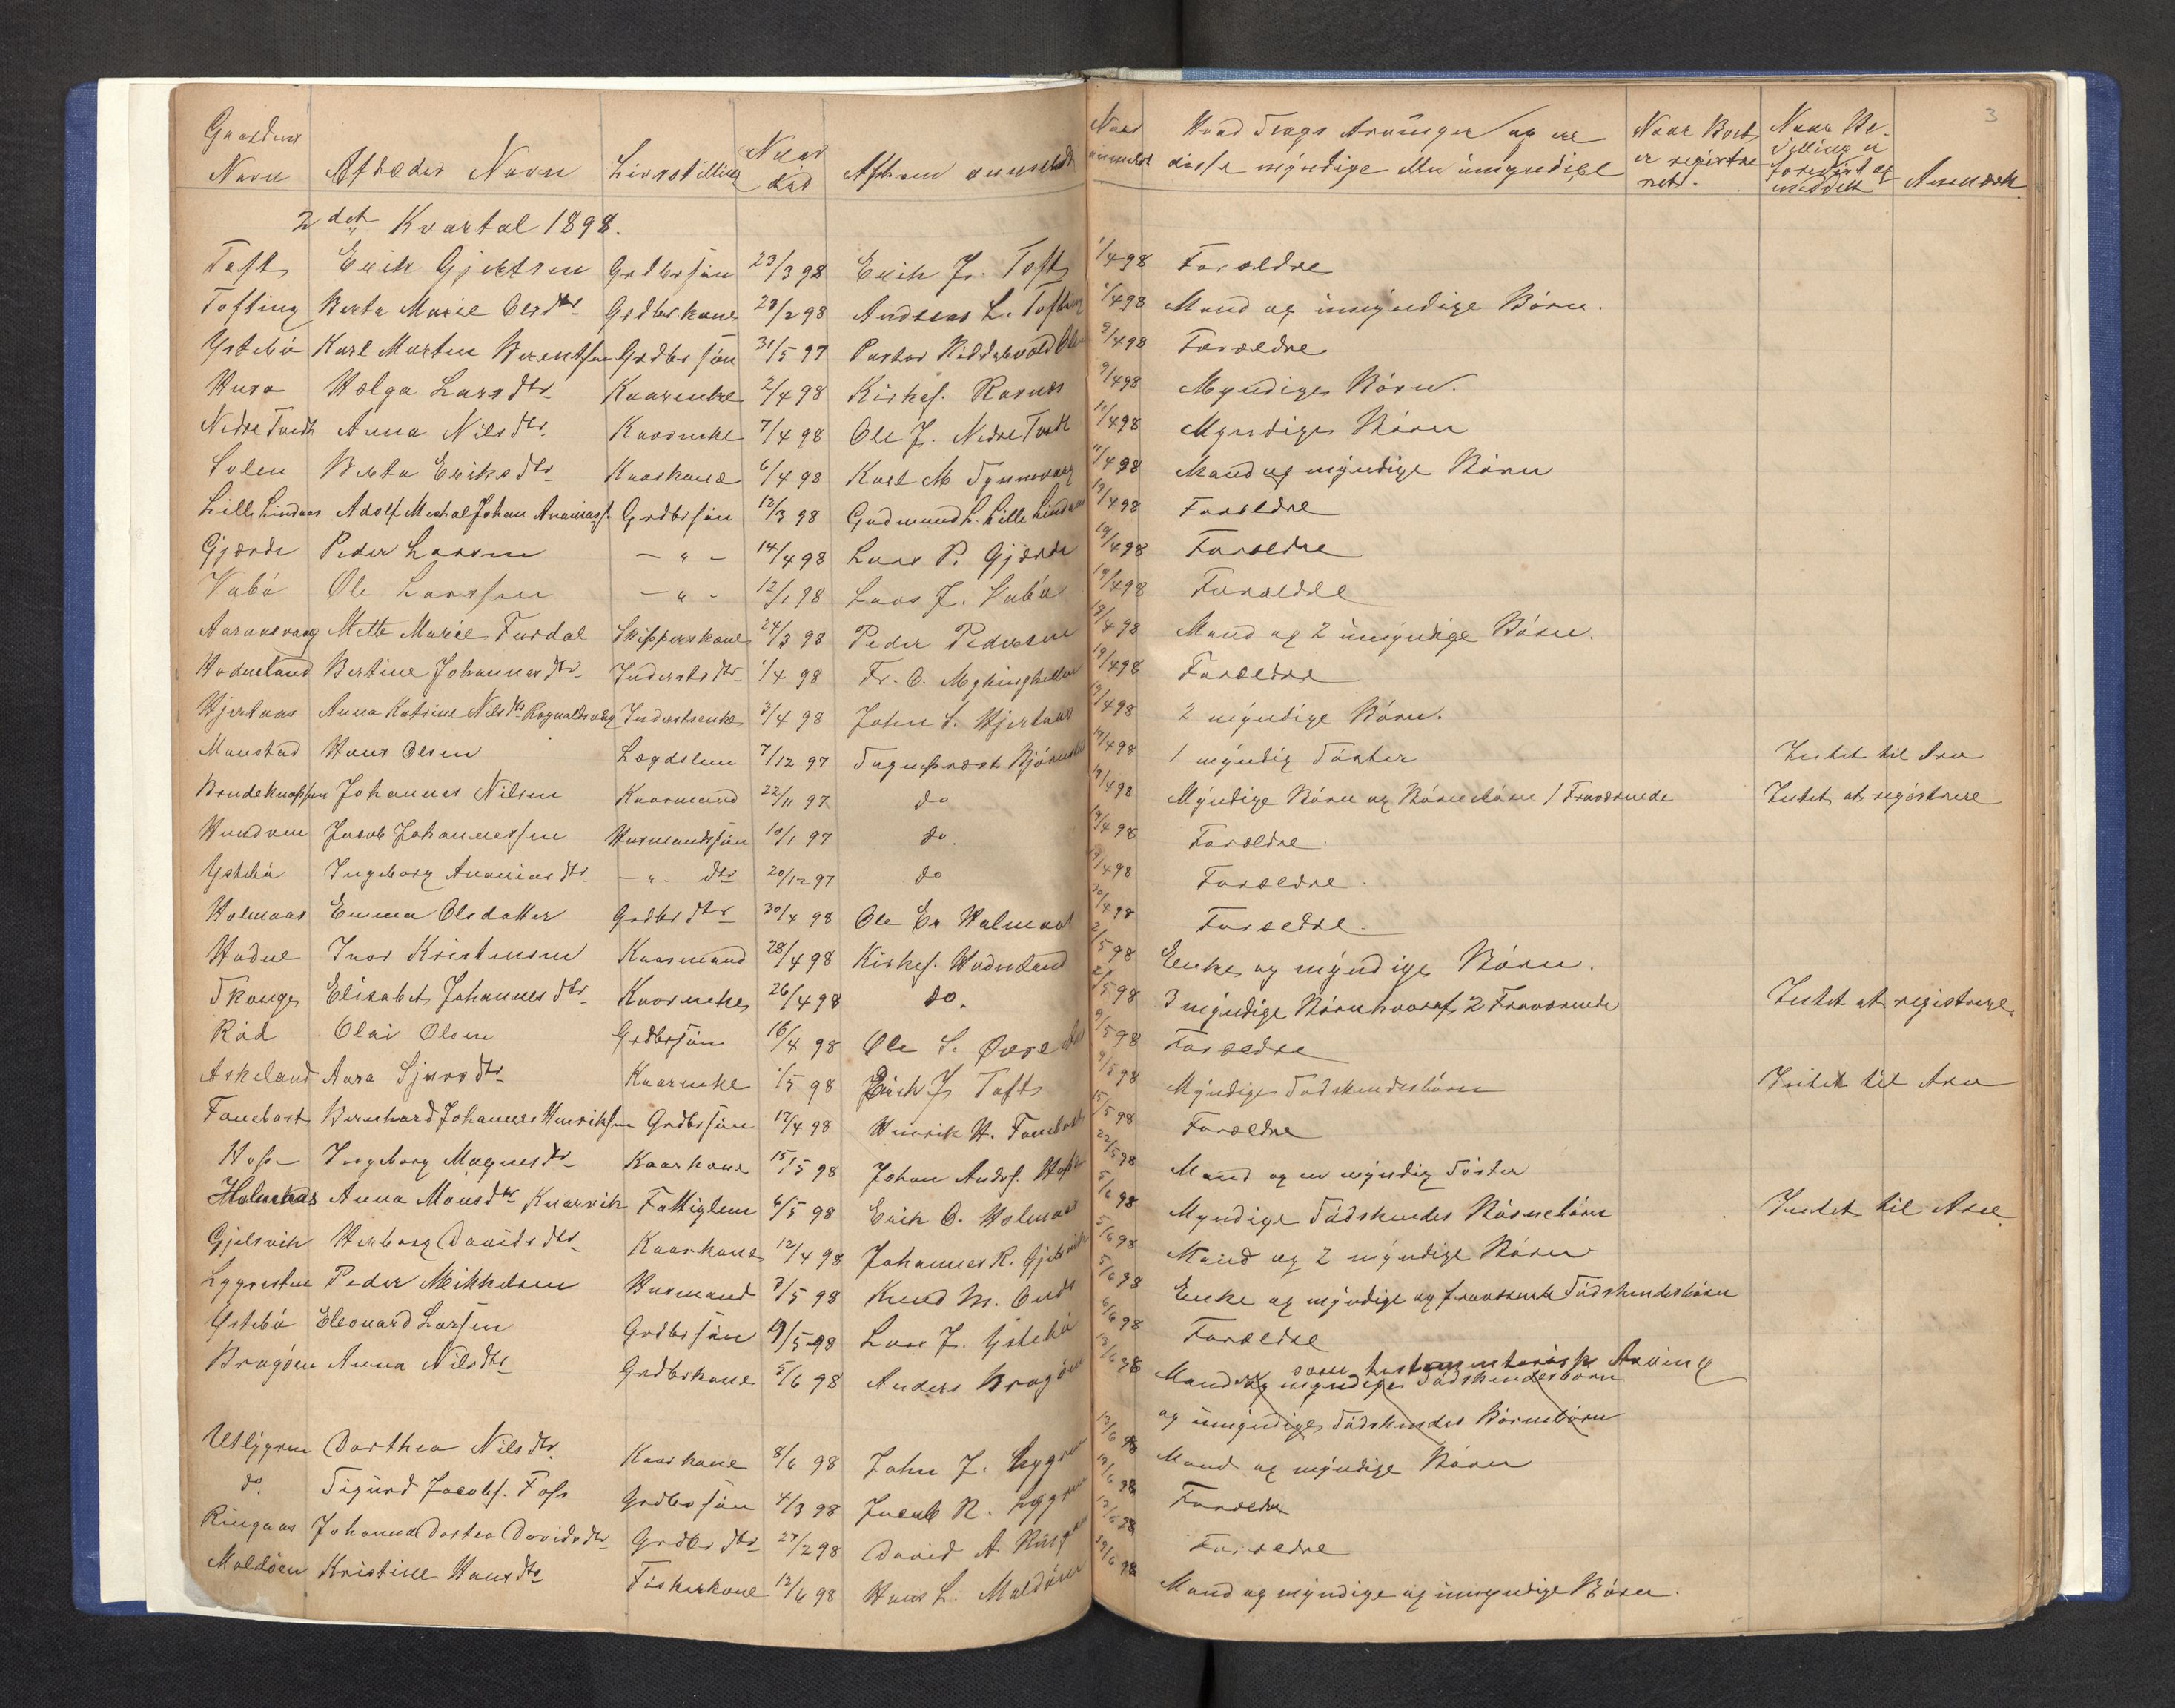 3
Gaardens Navn Afdødes Navn Livsstilling Naar død Af hvem anmeldt Naar anmeldt Hvad Slags Arvinger og ere disse myndige eller umyndige Naar Boet er registreret. Naar Be- villing er forevist og meddelt Anmærk
2det Kvartal 1898.
Toft Erik Gjertsen Grdbrsøn 23/3 98 Erik J. Toft 1/4 98 Forældre
Tofting Berta Marie Olsdtr Grdbrkone 28/2 98 Andreas L. Tofting 1/4 98 Mand og umyndige Børn.
Ystebø Karl Martin Berentsen Grdbrsøn 31/5 97 Pastor Ridderwold 9/4 98 Forældre
Husa Helga Larsdtr Kaarenke 2/4 98 Kirkes. Rasnes 9/4 98 Myndige Børn.
Nedre Tvedt Anna Nilsdtr. Kaarenke 7/4 98 Ole J. Nedre Tvedt 11/4 98 Myndige Børn
Solem Berta Eriksdtr Kaarkone 6/4 98 Karl M 11/4 98 Mand og myndige Børn
Lille Lindaas Adolf Mikal Johan Ananiass. Grdbrsøn 12/3 98 Gudmund L. Lille Lindaas 19/4 98 Forældre
Gjærde Peder Larsen — " — 14/4 98 Lars P. Gjærde 19/4 98 Forældre
Vabø Ole Larssen — " - 12/1 98 Lars J. Vabø 19/4 98 Forældre
Mette Marie Furdal Skipperkone 24/3 98 Peder Pedersen 19/4 98 Mand og 2 umyndige Børn.
Hodneland Bertine Johannesdtr Inderstsdtr 1/4 98 Fr. O. 19/4 98 Forældre
Hjertaas Anna Katrine Nilsdtr Rognaldsvåg Inderstenke 3/4 98 John S. Hjertaas 19/4 98 2 myndige Børn.
Monstad Hans Olsen Lægdslem 7/12 97 Sogneprest 19/4 98 1 myndig Søster Intet til Arv
Brudeknappen Johannes Nilsen Kaarmand 22/11 97 do 19/4 98 Myndige Børn og Børnebørn 1 Fraværende Intet at registrere
Hundven Jacob Johannessen Husmandssøn 10/1 97 do. 19/4 98 Forældre.
Ystebø Ingeborg Ananiasdtr — " - dtr 20/12 97 do 19/4 98 Forældre.
Holmaas Emma Olsdatter Grdbrdtr 30/4 98 Ole Er Holmaas 30/4 98 Forældre.
Hodne Ivar Kristensen Kaarmand 28/4 98 Kirkes. Hodneland 2/5 98 Enke og myndige Børn.
Skauge Elisabet Johannesdtr Kaarenke 26/4 98 do. 2/5 98 3 myndige Børn hvoraf 2 Fraværende Intet at registrere.
Rød Olai Olsen Grdbrsøn 16/4 98 Ole S. Øvre 9/5 98 Forældre
Askeland Anna Sjursdtr Kaarenke 1/5 98 Erik J Toft 9/5 98 Myndige Sødskendebørn Intet til Arv
Fonebost Bernhard Johannes Henriksen Grdbrsøn 17/4 98 Henrik H. Fonebost 15/5 98 Forældre
Hope Ingeborg Magnesdtr Kaarkone 15/5 98 Johan Anders. Hope 22/5 98 Mand og en myndig Søster
Holmaas Anna Monsdtr Knarvik Fattiglem 6/5 98 Erik O. Holmaas 5/6 98 Myndige Sødskendes Børnebørn Intet til Arv
Gjelsvik Herborg Davidsdtr Kaarkone 12/4 98 Johannes R. Gjelsvik 5/6 98 Mand og 2 myndige Børn
Lygresten Peder Mikkelsen Husmand 3/5 98 Knud M. 5/6 98 Enke og myndige og fraværende Sødskendebørn
Ystebø Eleonard Larsen Grdbrsøn 19/5 98 Lars J. Ystebø 6/6 98 Forældre
Bragøen Anna Nilsdtr Grdbrkone 5/6 98 Anders Bragøen 13/6 98 Mand som testamentarisk Arving
og myndige Sødskendebørn
og umyndige Sødskendes Børnebørn
Utlygren Dorthea Nilsdtr. Kaarkone 8/6 98 John J. Lygren 13/6 98 Mand og myndige Børn
do. Sigurd Jacobs. Foss Grdbrsøn 4/3 98 Jacob N. Lygren 13/6 98 Forældre
Ringaas Johanna Dortea Davidsdtr Grdbrdtr 27/2 98 David A Ringaas 13/6 98 Forældre
Moldøen Kristine Hansdtr Fiskerkone 12/6 98 Hans L. Moldøen 30/6 98 Mand og myndige og umyndige Børn.